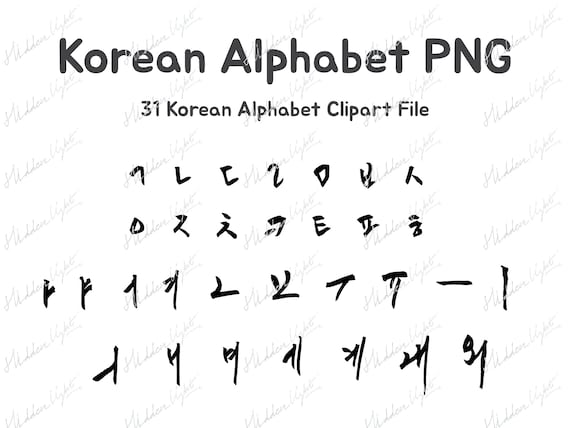 Korean Alphabet PNG
31 Korean Alphabet Clipart File
ㄱ ㄴ ㄷ ㄹ ㅁ ㅂ ㅅ
ㅇ ㅈ ㅊ ㅋ ㅌ ㅍ ㅎ
ㅏ ㅑ ㅓ ㅕ ㅗ ㅛ ㅜ ㅠ ㅡ ㅣ
ㅢ ㅐ ㅒ ㅔ ㅖ